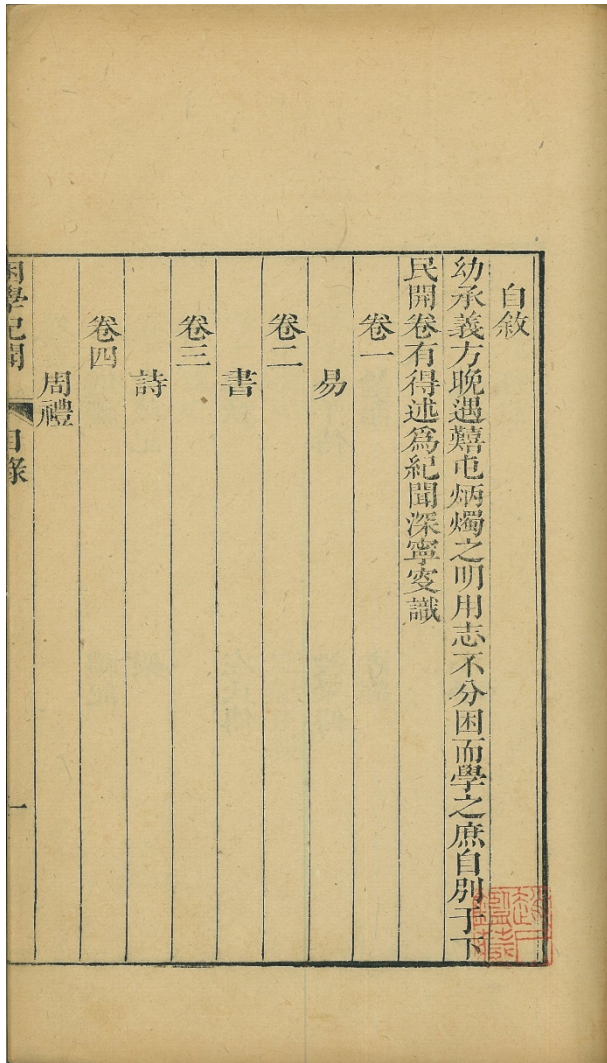 自敘
幼承義方晚遇囏屯炳燭之明用志不分困而學之庶自別于下
民開卷有得述爲紀聞深寧叜識
卷一
易
卷二
書
卷三
詩
卷四
周禮
困學紀聞 目錄 一